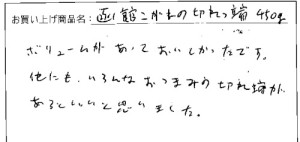 お買い上げ商品名：函館こがねの切れっ端 450g
ボリュームがあっておいしかったです。
他にも、いろんなおつまみの切れ端が
あるといいと思いました。